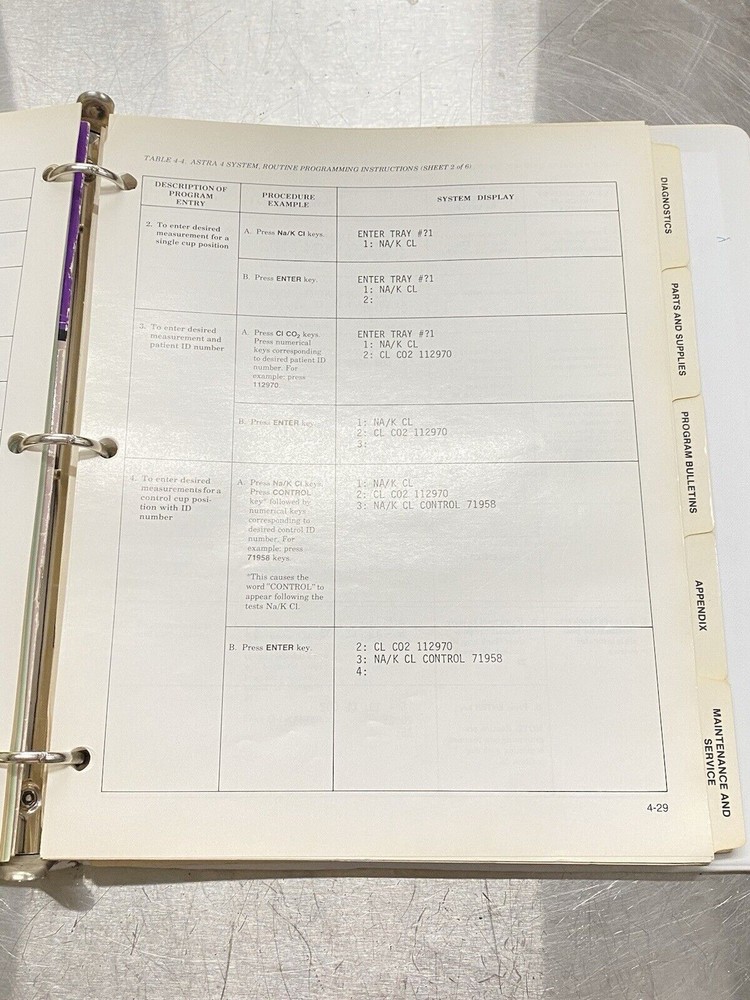 TABLE 4-4. ASTRA 4 SYSTEM, ROUTINE PROGRAMMING INSTRUCTIONS (SHEET 2 of 6)
DESCRIPTION OF
PROGRAM
ENTRY
PROCEDURE
EXAMPLE
SYSTEM DISPLAY
2. To enter desired
measurement for a
single cup position
A. Press Na/K Cl keys.
ENTER TRAY #?1
1: NA/K CL
B. Press ENTER key.
ENTER TRAY #?1
1: NA/K CL
2:
3. To enter desired
measurement and
patient ID number
A. Press Cl CO₂ keys.
Press numerical
keys corresponding
to desired patient ID
number. For
example: press
112970.
ENTER TRAY #?1
1: NA/K CL
2: CL CO2 112970
B. Press ENTER key.
1: NA/K CL
2: CL CO2 112970
3:
4. To enter desired
measurements for a
control cup posi-
tion with ID
number
A. Press Na/K Cl keys.
Press CONTROL
key* followed by
numerical keys
corresponding to
desired control ID
number. For
example: press
71958 keys.
*This causes the
word "CONTROL" to
appear following the
tests Na/K Cl.
1: NA/K CL
2: CL CO2 112970
3: NA/K CL CONTROL 71958
B. Press ENTER key.
2: CL CO2 112970
3: NA/K CL CONTROL 71958
4:
4-29
DIAGNOSTICS
PARTS AND SUPPLIES
PROGRAM BULLETINS
APPENDIX
MAINTENANCE AND
SERVICE